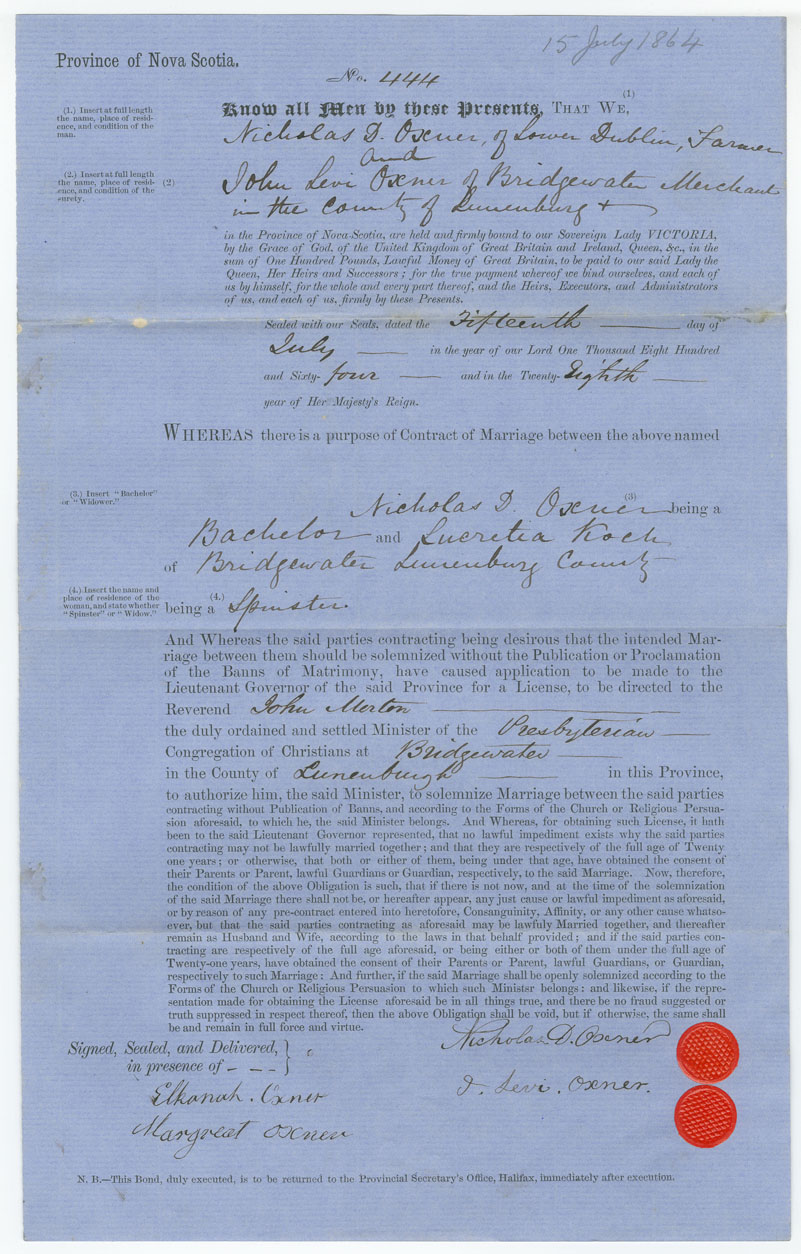 15 July 1864
Province of Nova Scotia.
No. 444
(1)
Know all Men by these Presents, THAT WE,
(1.) Insert at full length
the name, place of resid-
ence, and condition of the
man.
Nicholas D. Oxner, of Lower Dublin, Farmer
and
(2.) Insert at full length
the name, place of resid-
ence, and condition of the
surety.
(2)
John Levi Oxner of Bridgewater Merchant
in the County of Lunenburg +
in the Province of Nova-Scotia, are held and firmly bound to our Sovereign Lady VICTORIA,
by the Grace of God, of the United Kingdom of Great Britain and Ireland, Queen, &c., in the
sum of One Hundred Pounds, Lawful Money of Great Britain, to be paid to our said Lady the
Queen, Her Heirs and Successors; for the true payment whereof we bind ourselves, and each of
us by himself, for the whole and every part thereof, and the Heirs, Executors, and Administrators
of us, and each of us, firmly by these Presents.
Sealed with our Seals, dated the Fifteenth day of
July in the year of our Lord One Thousand Eight Hundred
and Sixty-four and in the Twenty-Eighth
year of Her Majesty's Reign.
WHEREAS there is a purpose of Contract of Marriage between the above named
(3.) Insert "Bachelor"
or "Widower."
Nicholas D. Oxner (3) being a
Bachelor and Lucretia Koch
of Bridgewater Lunenburg County
(4.) Insert the name and
place of residence of the
woman, and state whether
"Spinster" or "Widow."
(4.)
being a Spinster.
And Whereas the said parties contracting being desirous that the intended Mar-
riage between them should be solemnized without the Publication or Proclamation
of the Banns of Matrimony, have caused application to be made to the
Lieutenant Governor of the said Province for a License, to be directed to the
Reverend John Morton
the duly ordained and settled Minister of the Presbyterian
Congregation of Christians at Bridgewater
in the County of Lunenburgh in this Province,
to authorize him, the said Minister, to solemnize Marriage between the said parties
contracting without Publication of Banns, and according to the Forms of the Church or Religious Persua-
sion aforesaid, to which he, the said Minister belongs. And Whereas, for obtaining such License, it hath
been to the said Lieutenant Governor represented, that no lawful impediment exists why the said parties
contracting may not be lawfully married together; and that they are respectively of the full age of Twenty
one years; or otherwise, that both or either of them, being under that age, have obtained the consent of
their Parents or Parent, lawful Guardians or Guardian, respectively, to the said Marriage. Now, therefore,
the condition of the above Obligation is such, that if there is not now, and at the time of the solemnization
of the said Marriage there shall not be, or hereafter appear, any just cause or lawful impediment as aforesaid,
or by reason of any pre-contract entered into heretofore, Consanguinity, Affinity, or any other cause whatso-
ever, but that the said parties contracting as aforesaid may be lawfuly Married together, and thereafter
remain as Husband and Wife, according to the laws in that behalf provided; and if the said parties con-
tracting are respectively of the full age aforesaid, or being either or both of them under the full age of
Twenty-one years, have obtained the consent of their Parents or Parent, lawful Guardians, or Guardian,
respectively to such Marriage: And further, if the said Marriage shall be openly solemnized according to the
Forms of the Church or Religious Persuasion to which such Minister belongs: and likewise, if the repre-
sentation made for obtaining the License aforesaid be in all things true, and there be no fraud suggested or
truth suppressed in respect thereof, then the above Obligation shall be void, but if otherwise, the same shall
be and remain in full force and virtue.
Signed, Sealed, and Delivered,
in presence of
Nicholas D. Oxner
J. Levi. Oxner.
Elkanah. Oxner
Margreat Oxner
N. B.—This Bond, duly executed, is to be returned to the Provincial Secretary's Office, Halifax, immediately after execution.